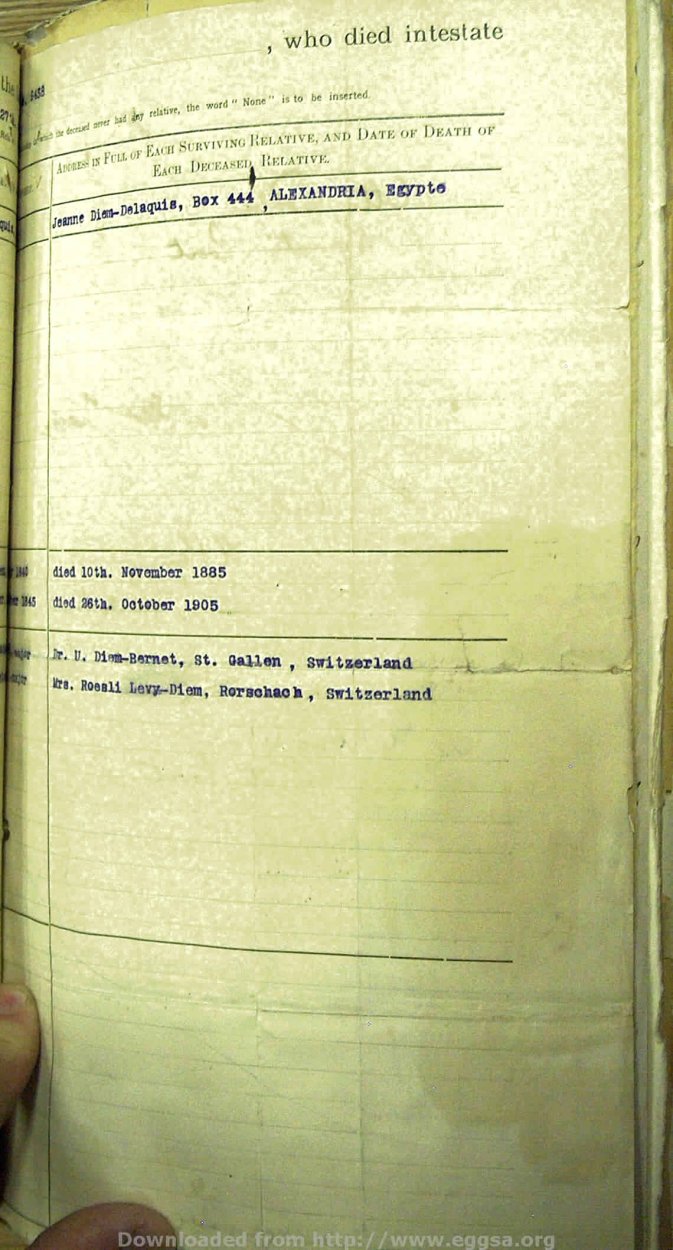 , who died intestate
the
9438
the deceased never had any relative, the word "None" is to be inserted.
ADDRESS IN FULL OF EACH SURVIVING RELATIVE, AND DATE OF DEATH OF
EACH DECEASED RELATIVE.
Jeanne Diem-Delaquis, Box 444, ALEXANDRIA, Egypte
1840 died 10th. November 1885
1845 died 26th. October 1905
major Dr. U. Diem-Bernet, St. Gallen , Switzerland
major Mrs. Roesli Levy-Diem, Rorschach , Switzerland
Downloaded from http://www.eggsa.org